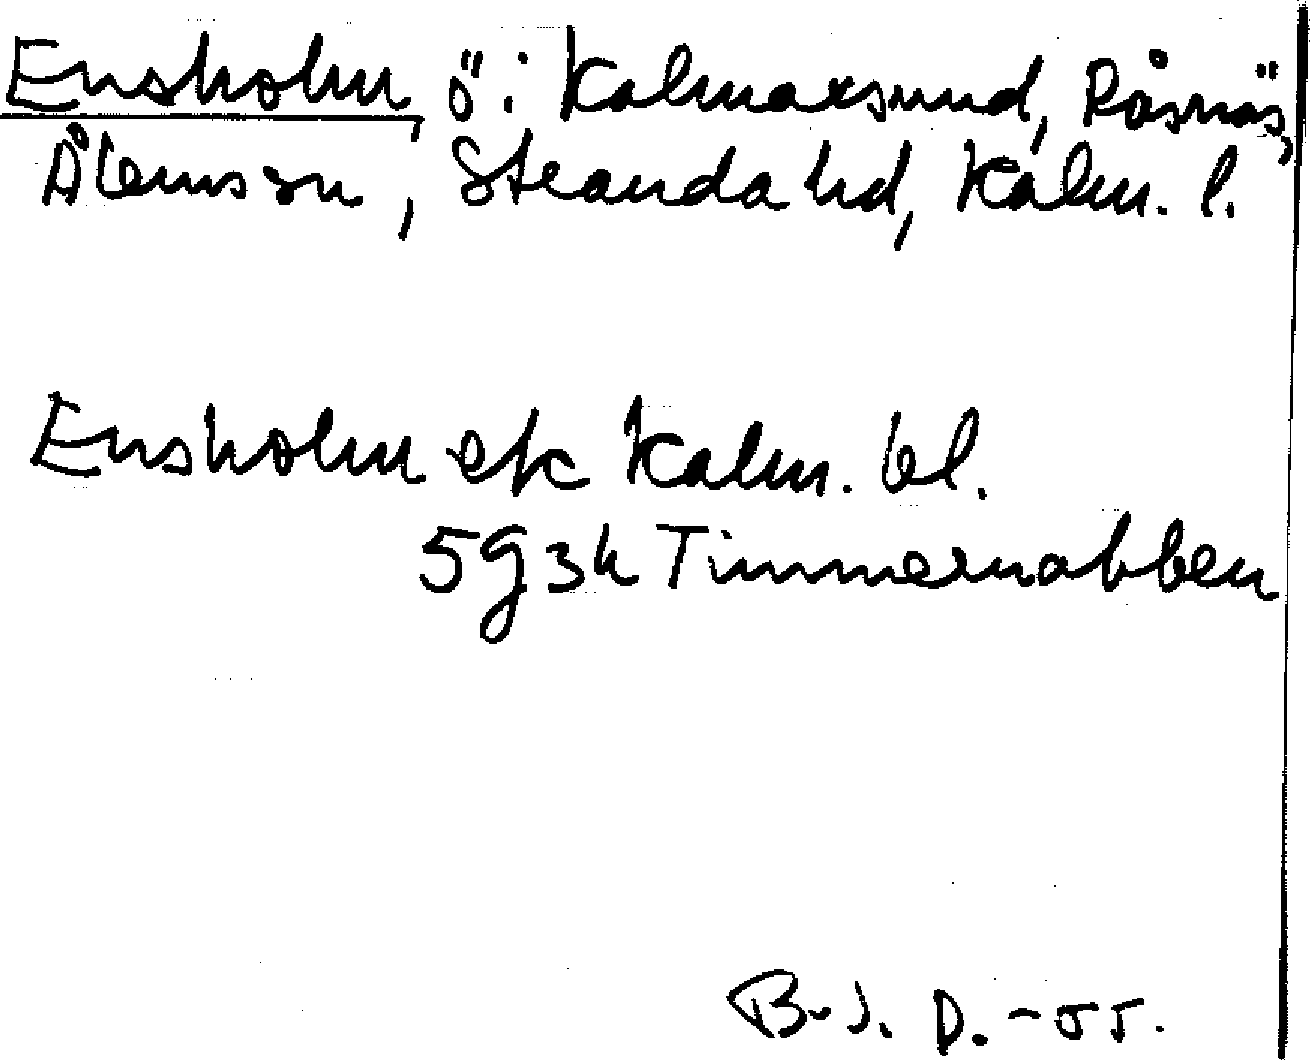 Ensholm, ö i Kalmarsund, Råsnäs,
Ålems sn, Stranda hd, Kalm. l.
Ensholm ek Kalm. bl.
5g3h Timmernabben
B. J. D. -55.